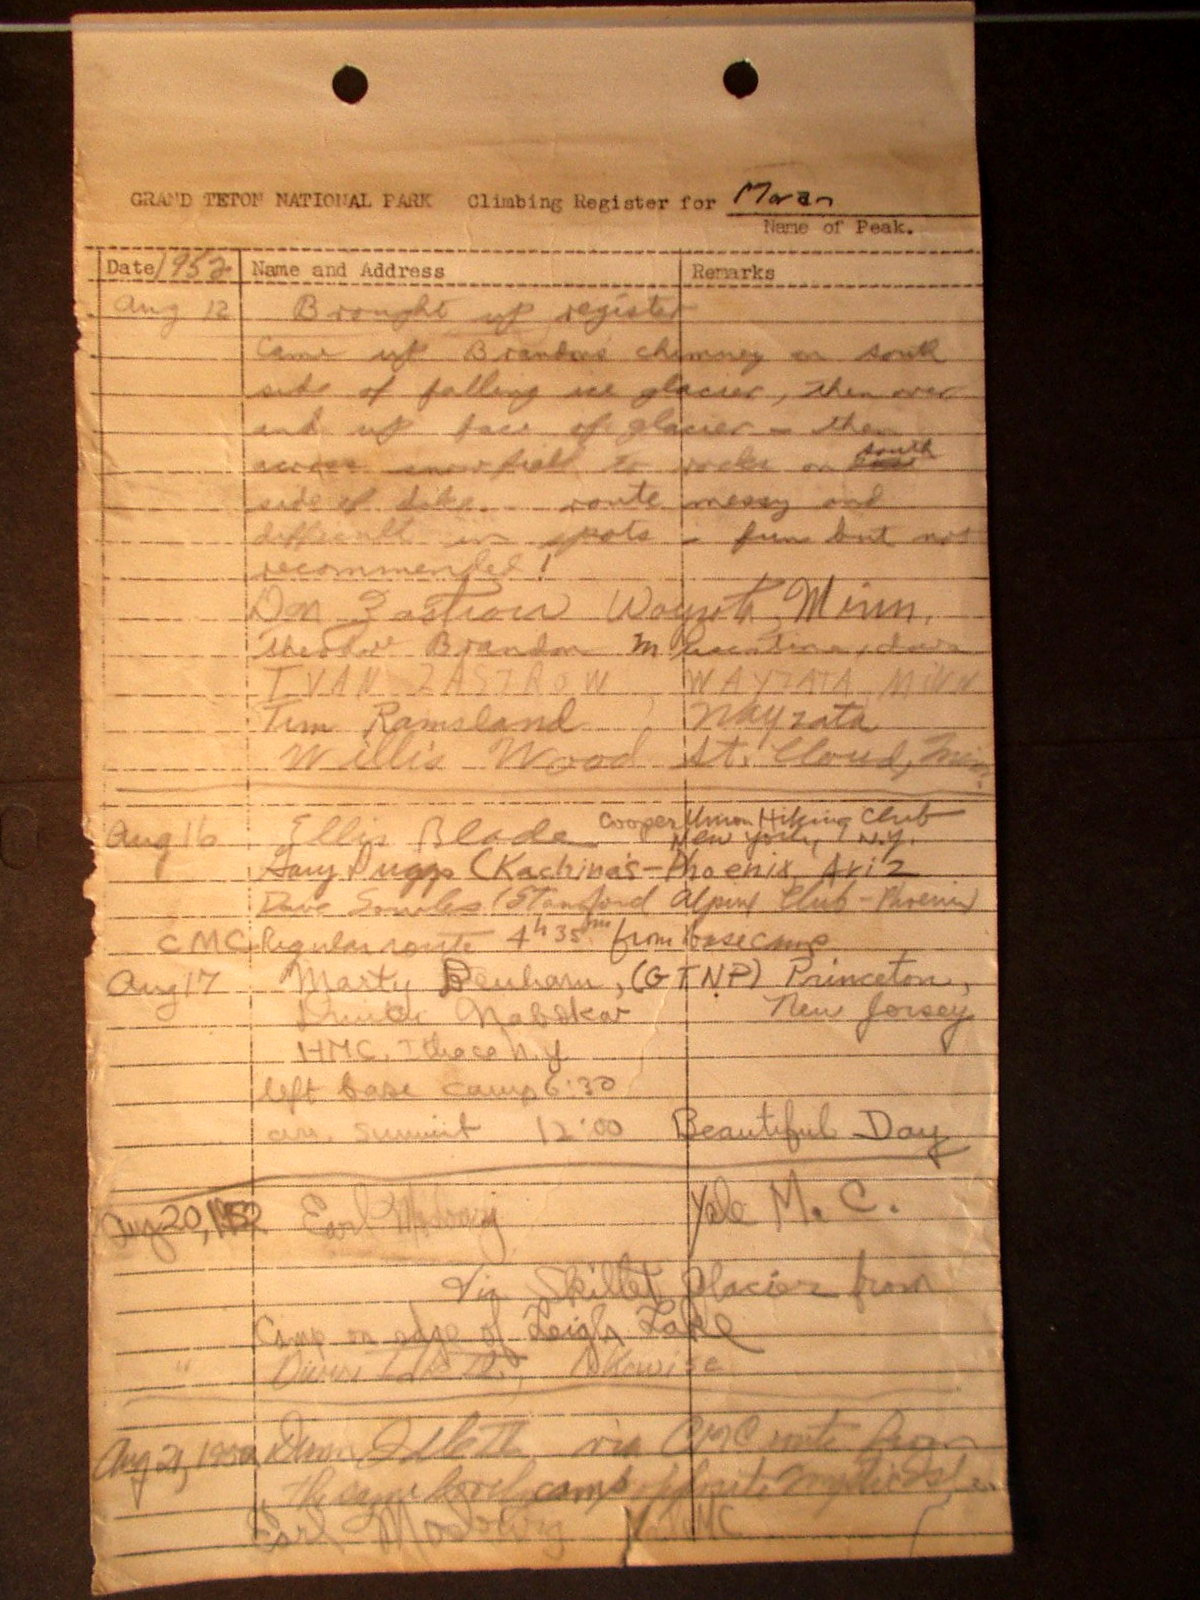 GRAND TETON NATIONAL PARK Climbing Register for Moran
Name of Peak.
Date 1952 Name and Address Remarks
Aug 12 Brought up register
Came up Brandons chimney on south
side of falling ice glacier, then over
and up face of glacier - then
across snowfield to rocks on south
side of dike. route messy and
difficult in spots - fun but not
recommended!
Don Zastrow Wayzata, Minn.
Theodor Brandon
IVAN ZASTROW WAYZATA MINN
Tim Ramsland Wayzata
Willis Wood St. Cloud, Minn
Aug 16 Ellis Blade Cooper Union Hiking Club
New York, N.Y.
Gary Driggs (Kachina's - Phoenix, Ariz
Dave Sowles (Stanford Alpine Club - Phoenix)
CMC Regular route 4h 35m from basecamp
Aug 17 Marty Benham, (GTNP) Princeton,
Nabokov New Jersey
HMC, Ithaca N.Y
left base camp 6:30
arr. summit 12:00 Beautiful Day
Aug 20, 1952 Earl Yale M. C.
Via Skillet Glacier from
Camp on edge of Leigh Lake
" likewise
Aug 21, 1952 via CMC route from
the same camp opposite Mystic Isle
Earl